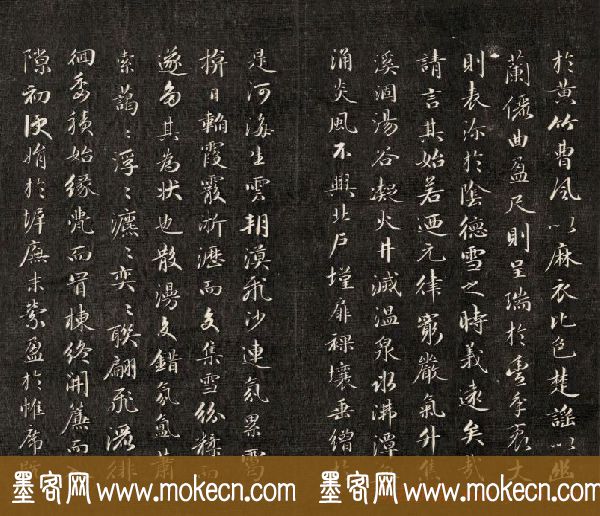 於黃竹曹風以麻衣比色楚謠以幽
蘭儷曲盈尺則呈瑞於豐年袤丈
則表沴於陰德雪之時義遠矣哉
請言其始若迺元律窮嚴氣升焦
溪涸湯谷凝火井滅溫泉冰沸潭
涌炎風不興北戶墐扉裸壤垂繒於
是河海生雲朔漠飛沙連氛累靄
揜日韜霞霰淅瀝而先集雪紛糅而
遂多其為狀也散漫交錯氛氳蕭
索藹々浮々瀌々奕々聯翩飛灑徘
徊委積始緣甍而冒棟終開簾而
隙初便娟於墀廡末縈盈於帷席
墨客网 www.mokecn.com 墨客网 www.mokecn.com